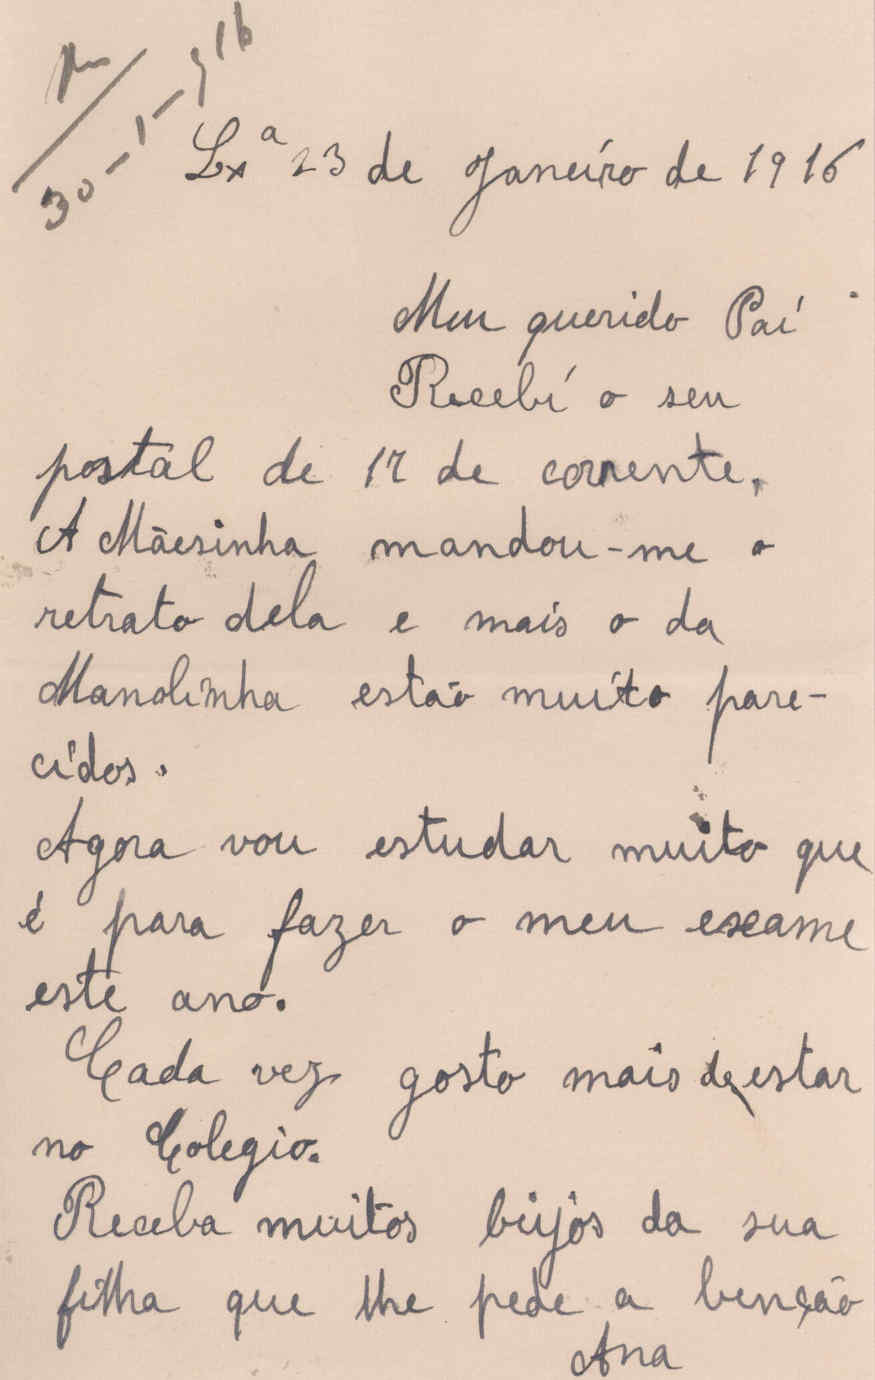 30-1-916
Lxª 23 de Janeiro de 1916
Meu querido Pai
Recebí o seu
postal de 17 de corrente.
A Mãesinha mandou-me o
retrato dela e mais o da
Manolinha estão muito pare-
cídos.
Agora vou estudar muito que
é para fazer o meu exame
este ano.
Cada vez gosto mais de estar
no Colegio.
Receba muitos beijos da sua
filha que lhe pede a benção
Ana